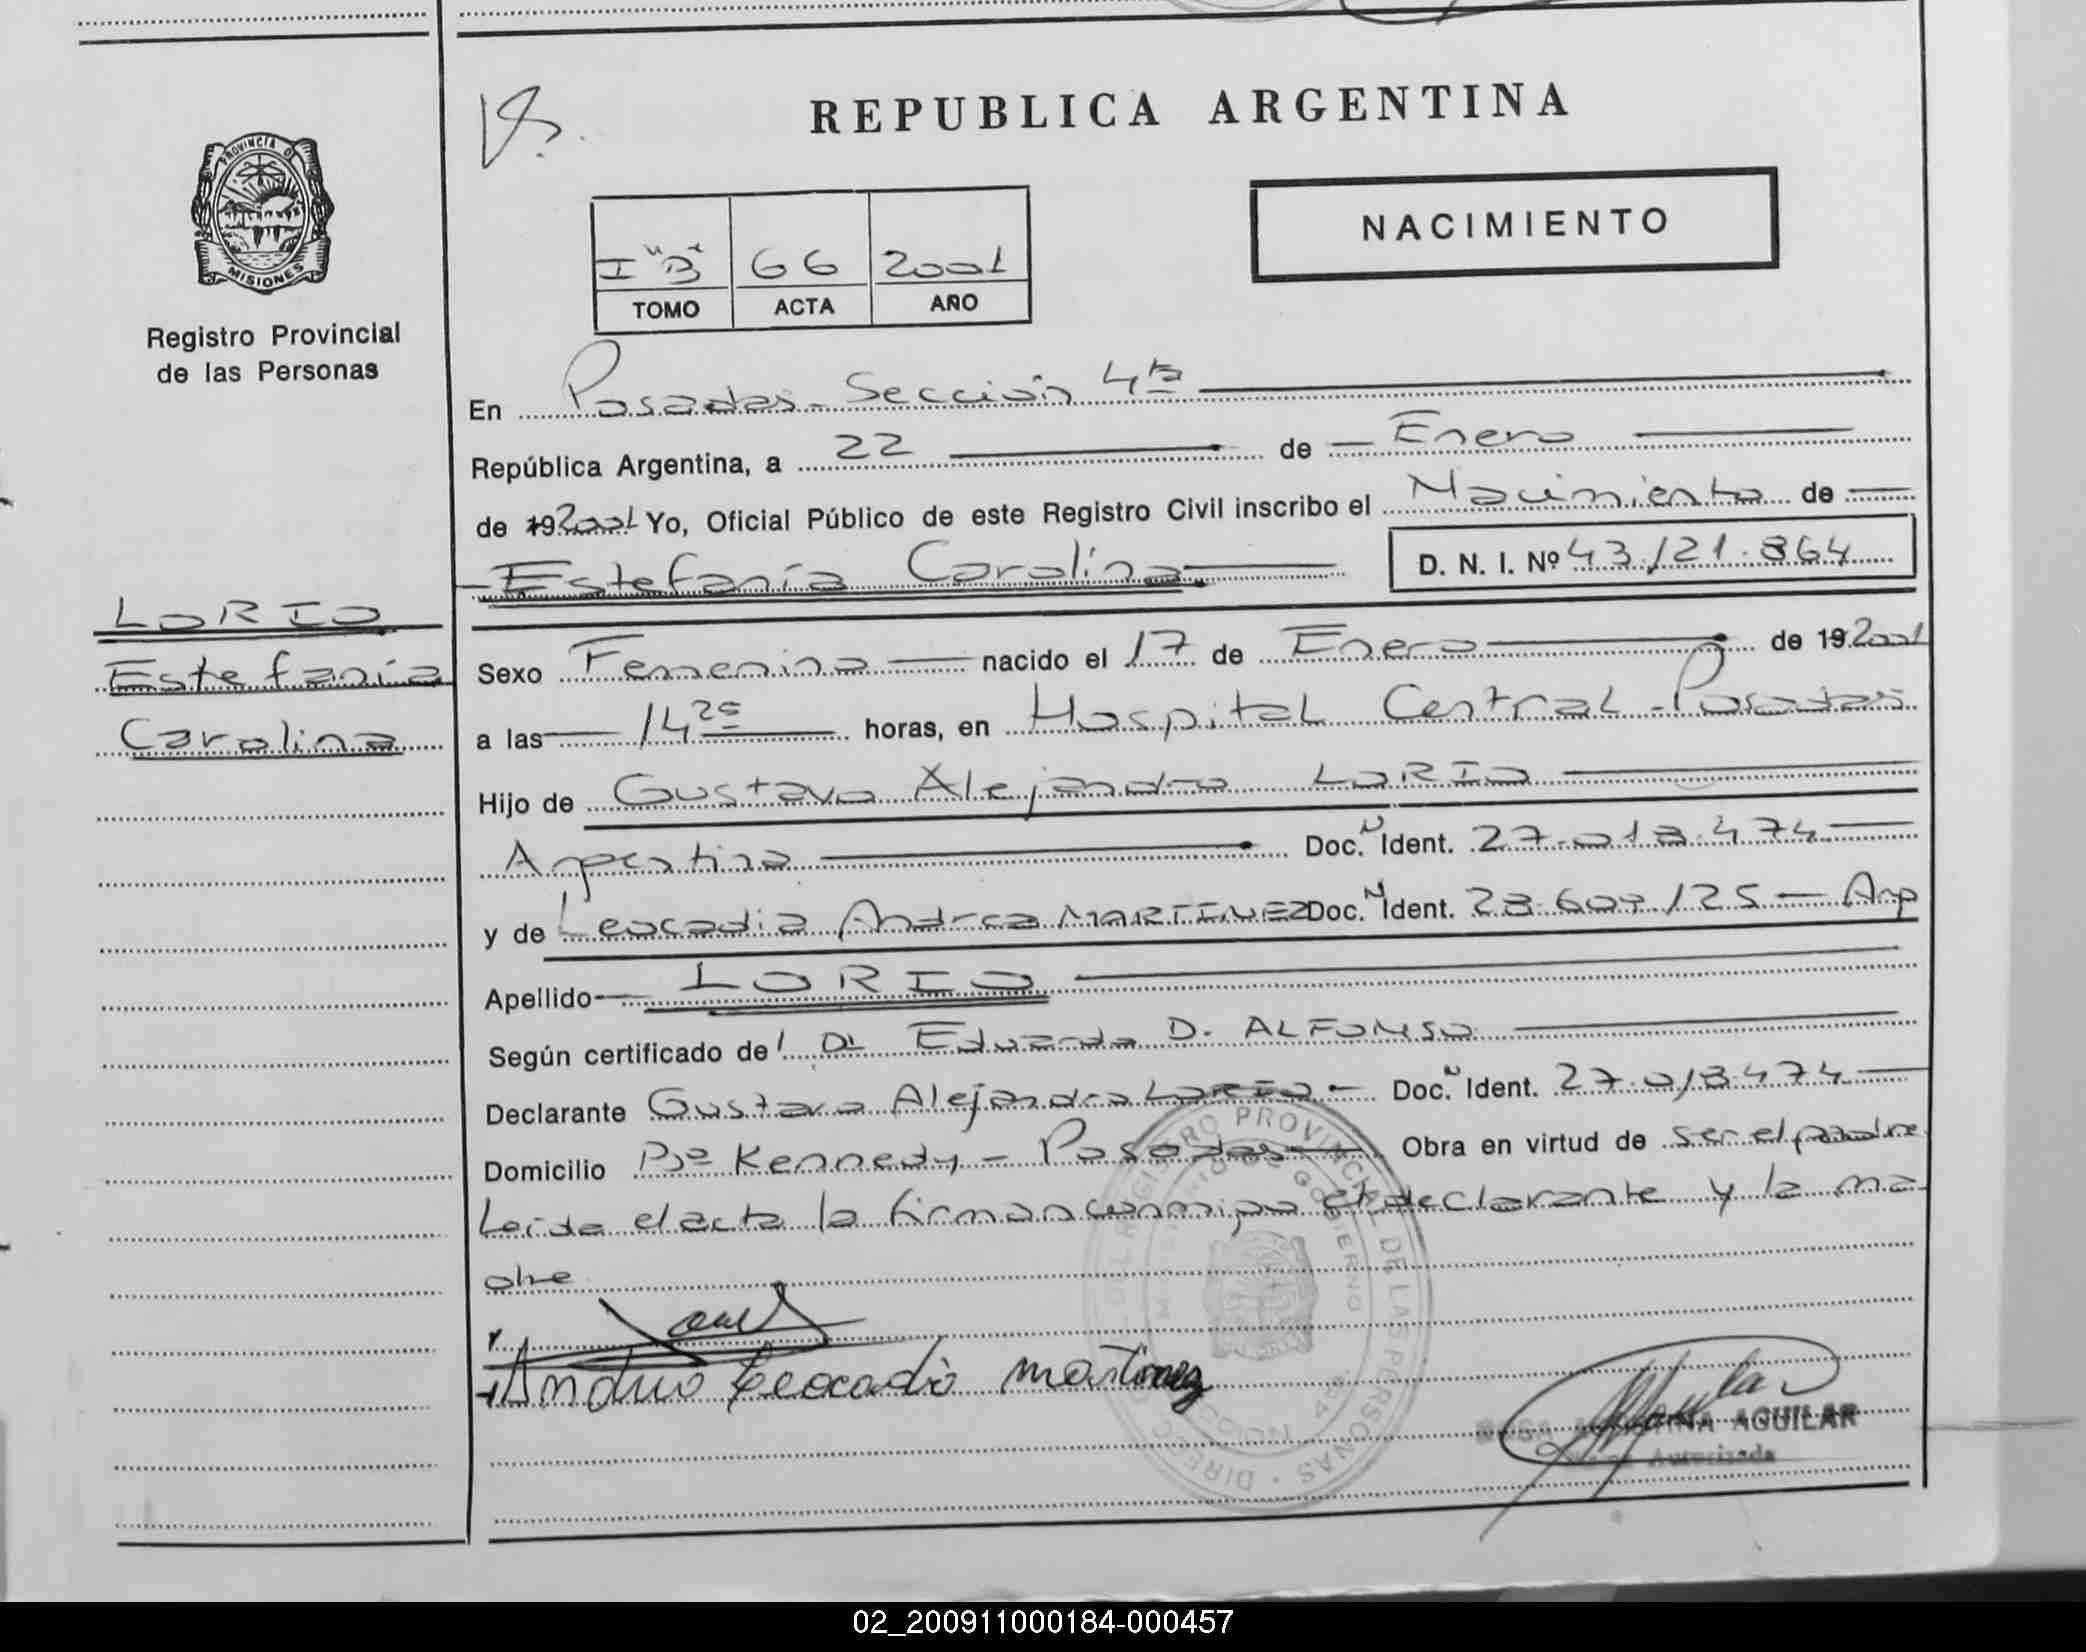 REPUBLICA ARGENTINA
PROVINCIA D
MISIONES
Registro Provincial
de las Personas
NACIMIENTO
I "B" 66 2001
TOMO ACTA AÑO
En Posadas - Sección 4ta
República Argentina, a 22 de Enero
de 192001 Yo, Oficial Público de este Registro Civil inscribo el Nacimiento de
Estefanía Carolina D. N. I. Nº 43.121.864
LORIO
Estefanía
Carolina
Sexo Femenino nacido el 17 de Enero de 192001
a las 14 25 horas, en Hospital Central - Posadas
Hijo de Gustavo Alejandro LORIO
Argentina Doc. N Ident. 27.018.474
y de Leocadia Andrea MARTINEZ Doc. N Ident. 28.609.125 - Arg
Apellido LORIO
Según certificado de Dr Eduardo D. ALFONSO
Declarante Gustavo Alejandro LORIO - Doc. N Ident. 27.018.474
Domicilio Bº Kennedy - Posadas Obra en virtud de ser el padre
Leída el acta la firman conmigo el declarante y la ma
dre
Andrea Leocadia Martinez
DIRECC DEL REGISTRO PROVINCIAL DE LAS PERSONAS
GOBIERNO
AGUILAR
Autorizada
02_200911000184-000457